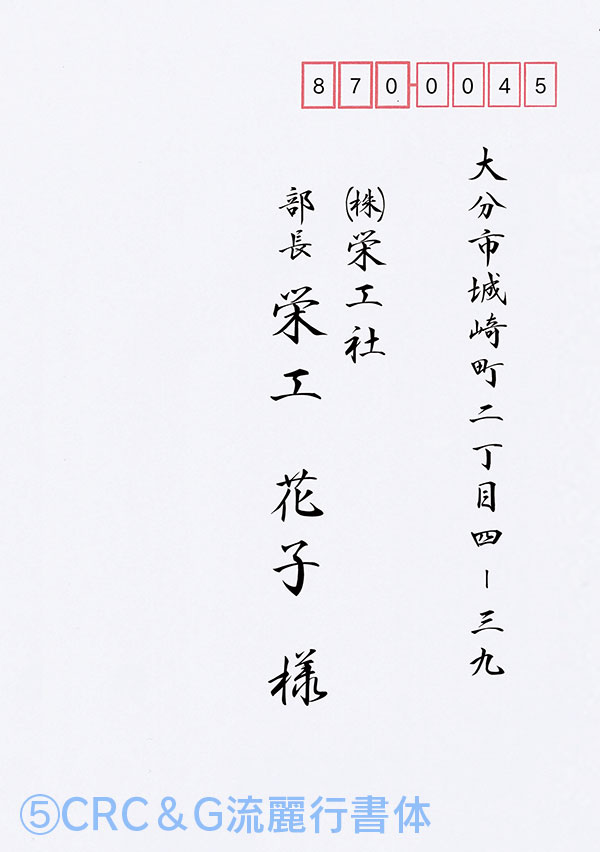 870-0045
大分市城崎町二丁目四ー三九
㈱栄工社
部長 栄工 花子 様
⑤CRC＆G流麗行書体